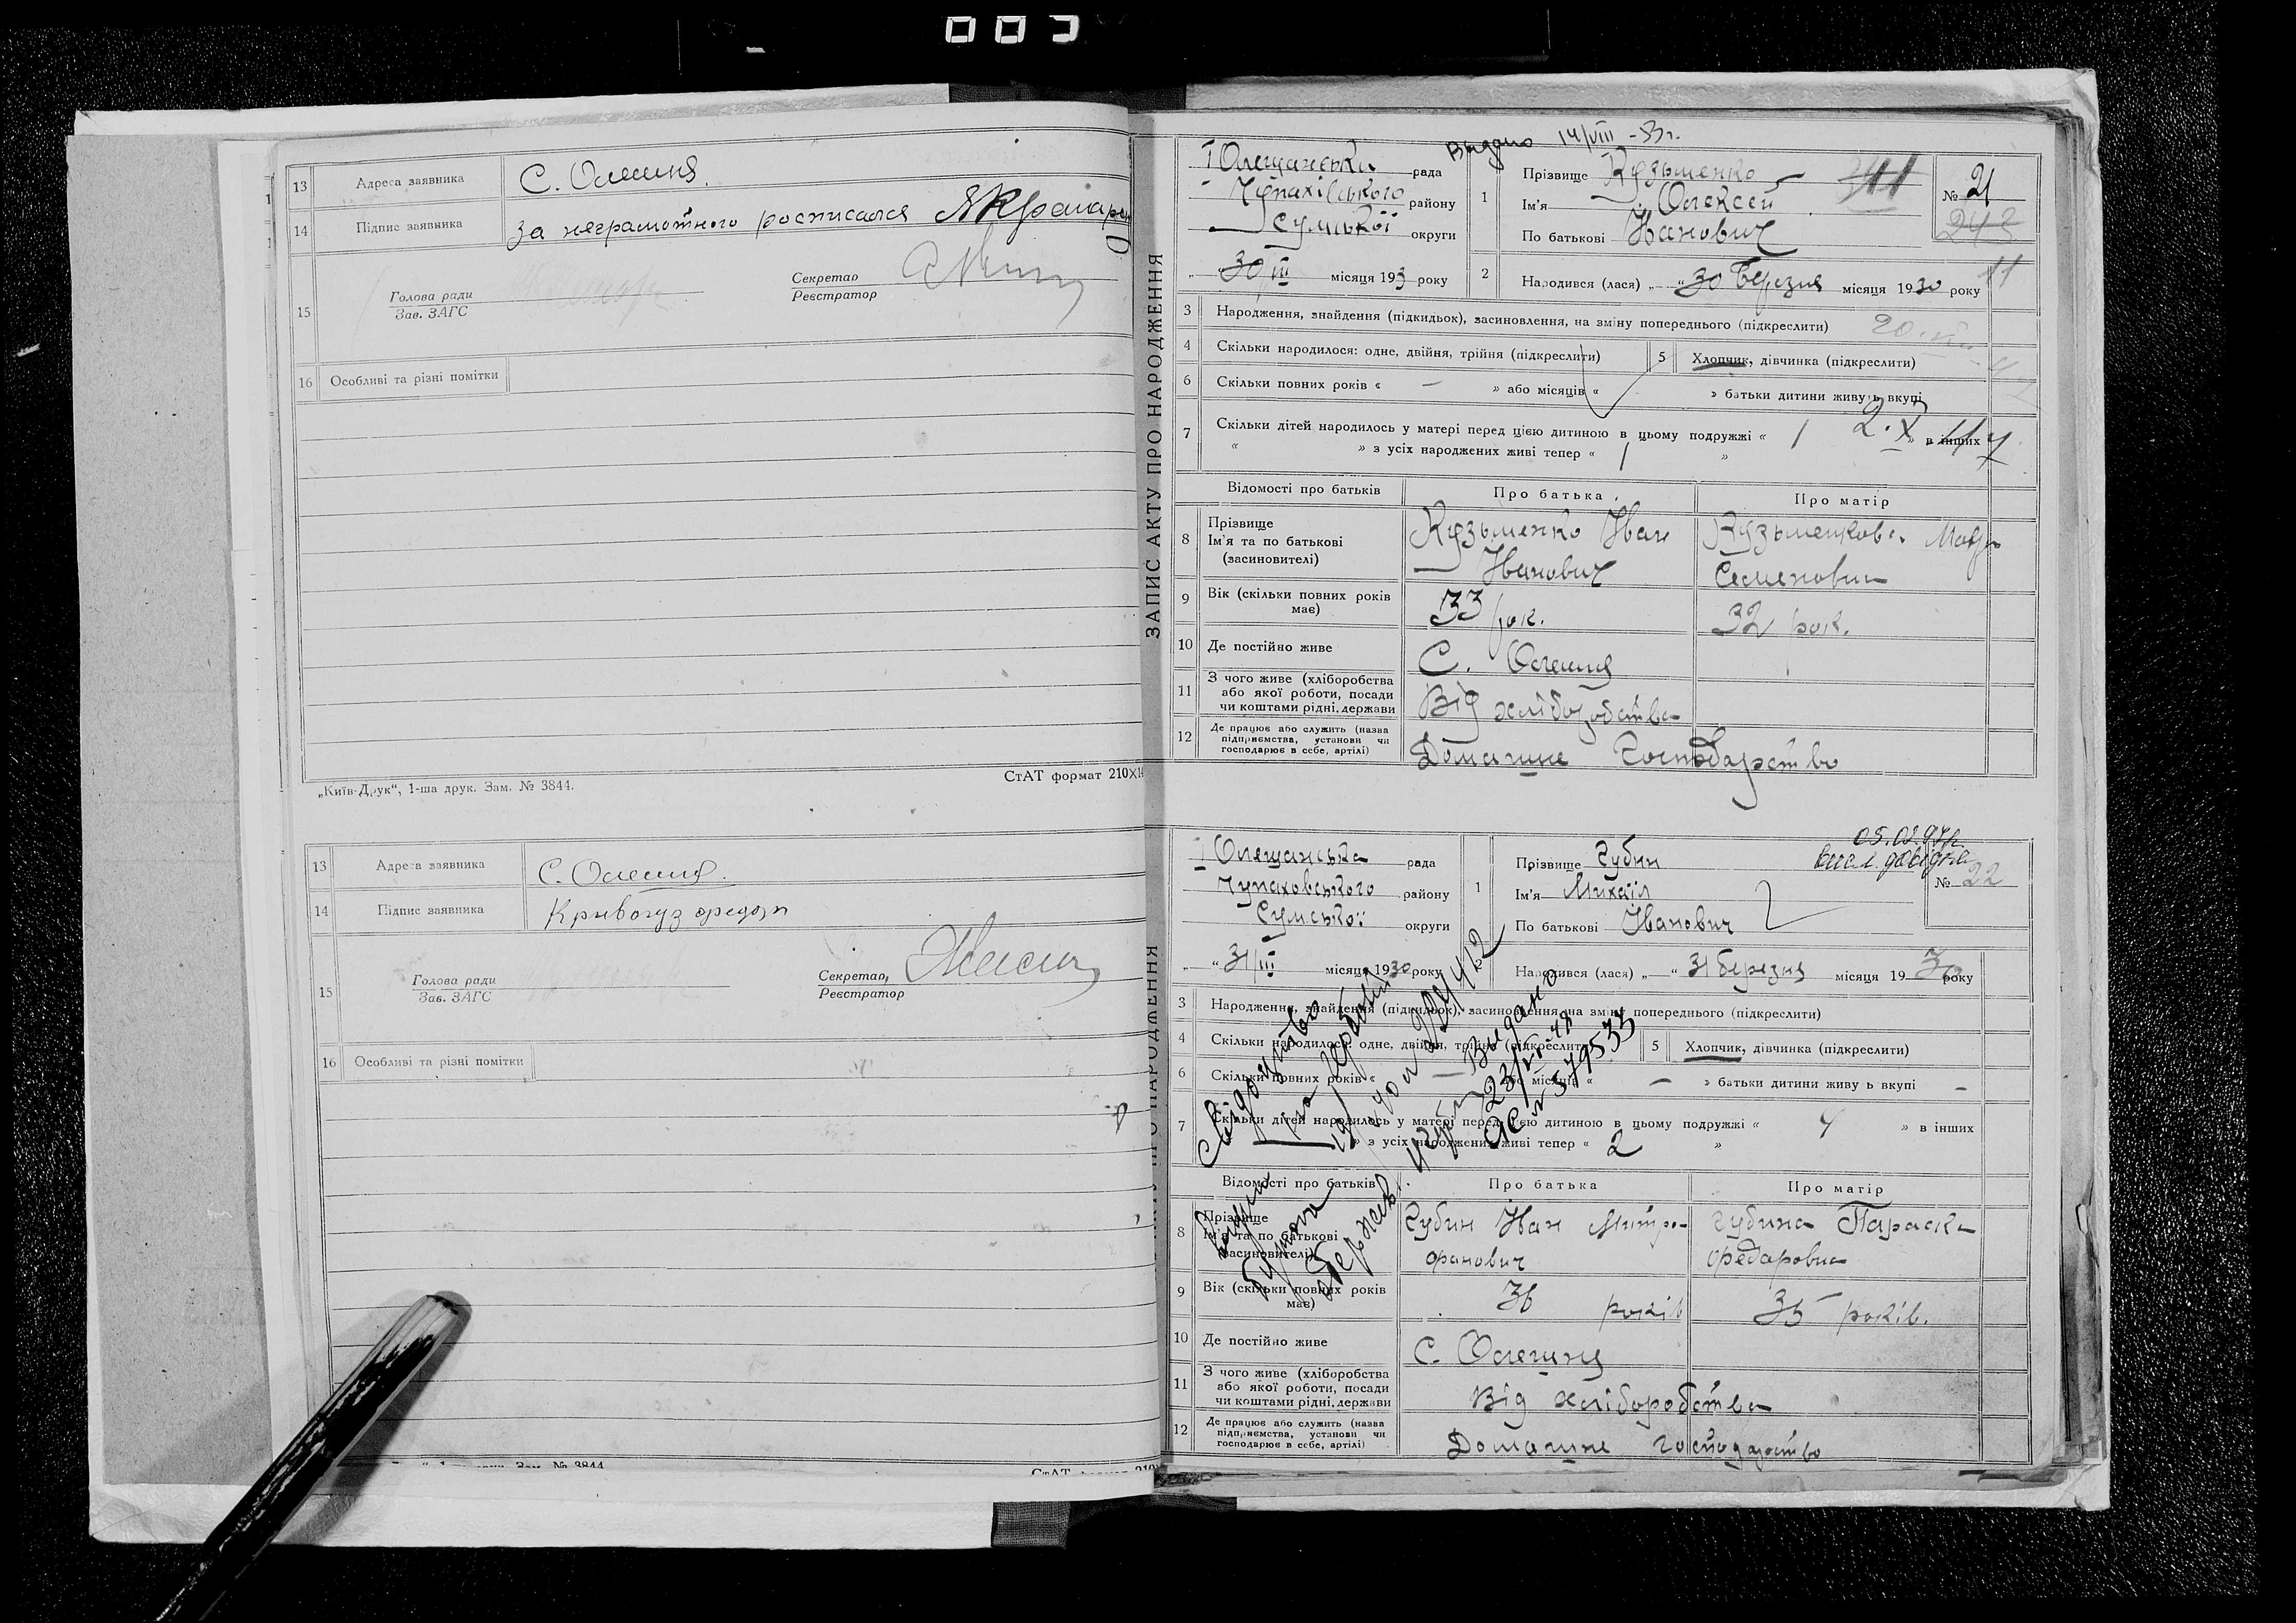 003
13 Адреса заявника С. Олешня.
14 Підпис заявника за неграмотного росписался
15 Голова ради
Зав. ЗАГС
Секретар
Реєстратор
16 Особливі та різні помітки
„Київ-Друк“, 1-ша друк. Зам. № 3844.
СтАТ формат 210×14
13 Адреса заявника С. Олешня.
14 Підпис заявника
15 Голова ради
Зав. ЗАГС
Секретар
Реєстратор
16 Особливі та різні помітки
Зам. № 3844
ЗАПИС АКТУ ПРО НАРОДЖЕННЯ
Видано 14/VIII
І Олещанська рада
Чупахівського району
Сумської округи
„ 30/III місяця 193 року
1 Прізвище Кузьменко
Ім'я Олексей
По батькові Іванович
№ 21
2 Народився (лася) „—“ 30 березня місяця 1930 року
3 Народження, знайдення (підкидьок), засиновлення, на зміну попереднього (підкреслити)
4 Скільки народилося: одне, двійня, трійня (підкреслити)
5 Хлопчик, дівчинка (підкреслити)
6 Скільки повних років « — » або місяців « » батьки дитини живуть вкупі
7 Скільки дітей народилось у матері перед цією дитиною в цьому подружжі « 1 » в інших
« » з усіх народжених живі тепер « 1 »
Відомості про батьків Про батька Про матір
8 Прізвище
Ім'я та по батькові
(засиновителі)
Кузьменко Іван
Іванович
Кузьменкова
Семеновна
9 Вік (скільки повних років має) 33 рок. 32 рок.
10 Де постійно живе С. Олешня
11 З чого живе (хліборобства
або якої роботи, посади
чи коштами рідні, держави
Від хліборобства
12 Де працює або служить (назва
підприємства, установи чи
господарює в себе, артілі)
Домашне Господарство
ЗАПИС АКТУ ПРО НАРОДЖЕННЯ
І Олещанська рада
Чупаховського району
Сумської округи
„ “ 31/III місяця 1930 року
1 Прізвище Губин
Ім'я Михаіл
По батькові Іванович
№ 22
2 Народився (лася) „—“ 31 березня місяця 1930 року
3 Народження, знайдення (підкидьок), засиновлення, на зміну попереднього (підкреслити)
4 Скільки народилося: одне, двійня, трійня (підкреслити)
5 Хлопчик, дівчинка (підкреслити)
6 Скільки повних років « — » або місяців « — » батьки дитини живуть вкупі —
7 Скільки дітей народилось у матері перед цією дитиною в цьому подружжі « 4 » в інших
» з усіх народжених живі тепер « 2 »
Видано
Відомості про батьків Про батька Про матір
8 Прізвище
Ім'я та по батькові
(засиновителі)
Губин Іван Митро-
фанович
Губина Параска
Федаровна
9 Вік (скільки повних років має) 36 років 35 років.
10 Де постійно живе С. Олешня
11 З чого живе (хліборобства
або якої роботи, посади
чи коштами рідні, держави
Від хліборобства
12 Де працює або служить (назва
підприємства, установи чи
господарює в себе, артілі)
Домашне господарство